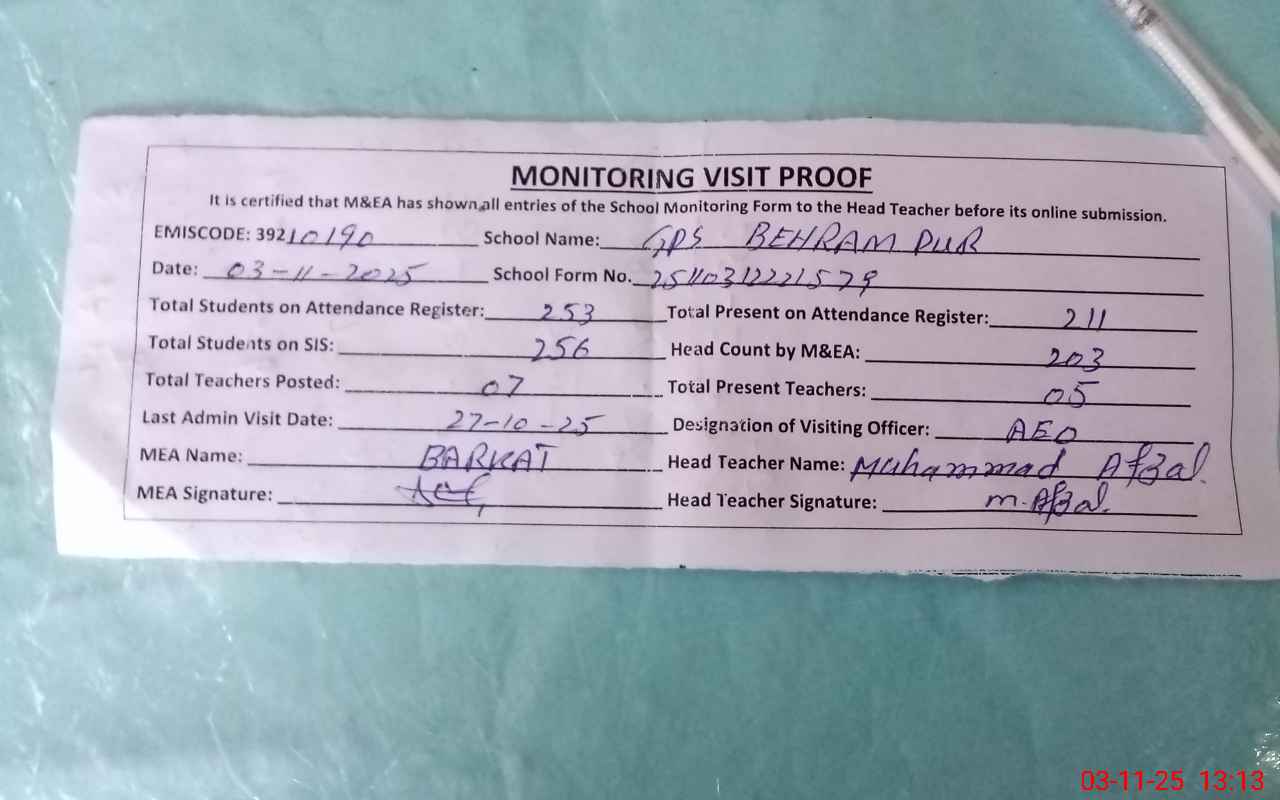 MONITORING VISIT PROOF
It is certified that M&EA has shown all entries of the School Monitoring Form to the Head Teacher before its online submission.
EMISCODE: 39210190 School Name: GPS BEHRAM PUR
Date: 03-11-2025 School Form No. 25110312221579
Total Students on Attendance Register: 253 Total Present on Attendance Register: 211
Total Students on SIS: 256 Head Count by M&EA: 203
Total Teachers Posted: 07 Total Present Teachers: 05
Last Admin Visit Date: 27-10-25 Designation of Visiting Officer: AEO
MEA Name: BARKAT Head Teacher Name: Muhammad Afzal.
MEA Signature: Head Teacher Signature: m.Afzal.
03-11-25 13:13